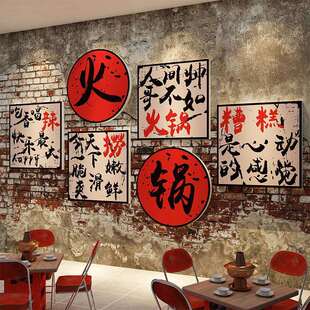 吃香喝辣
快乐最大
HAPPY
火
人间帅
哥不如
火锅
捞
天下
嫩
滑鲜
脆爽
锅
糟糕
是心动
的感觉